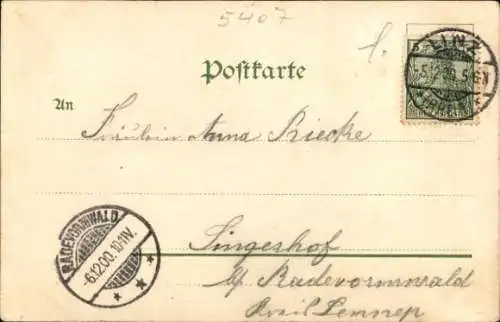 5407
1.
LINZ
5.12.00.5-6N
Postkarte
An
Fräulein Anna Riecke
Singerhof
b/ Radevormwald
Kreis Lennep
RADEVORMWALD
6.12.00.10-11V.